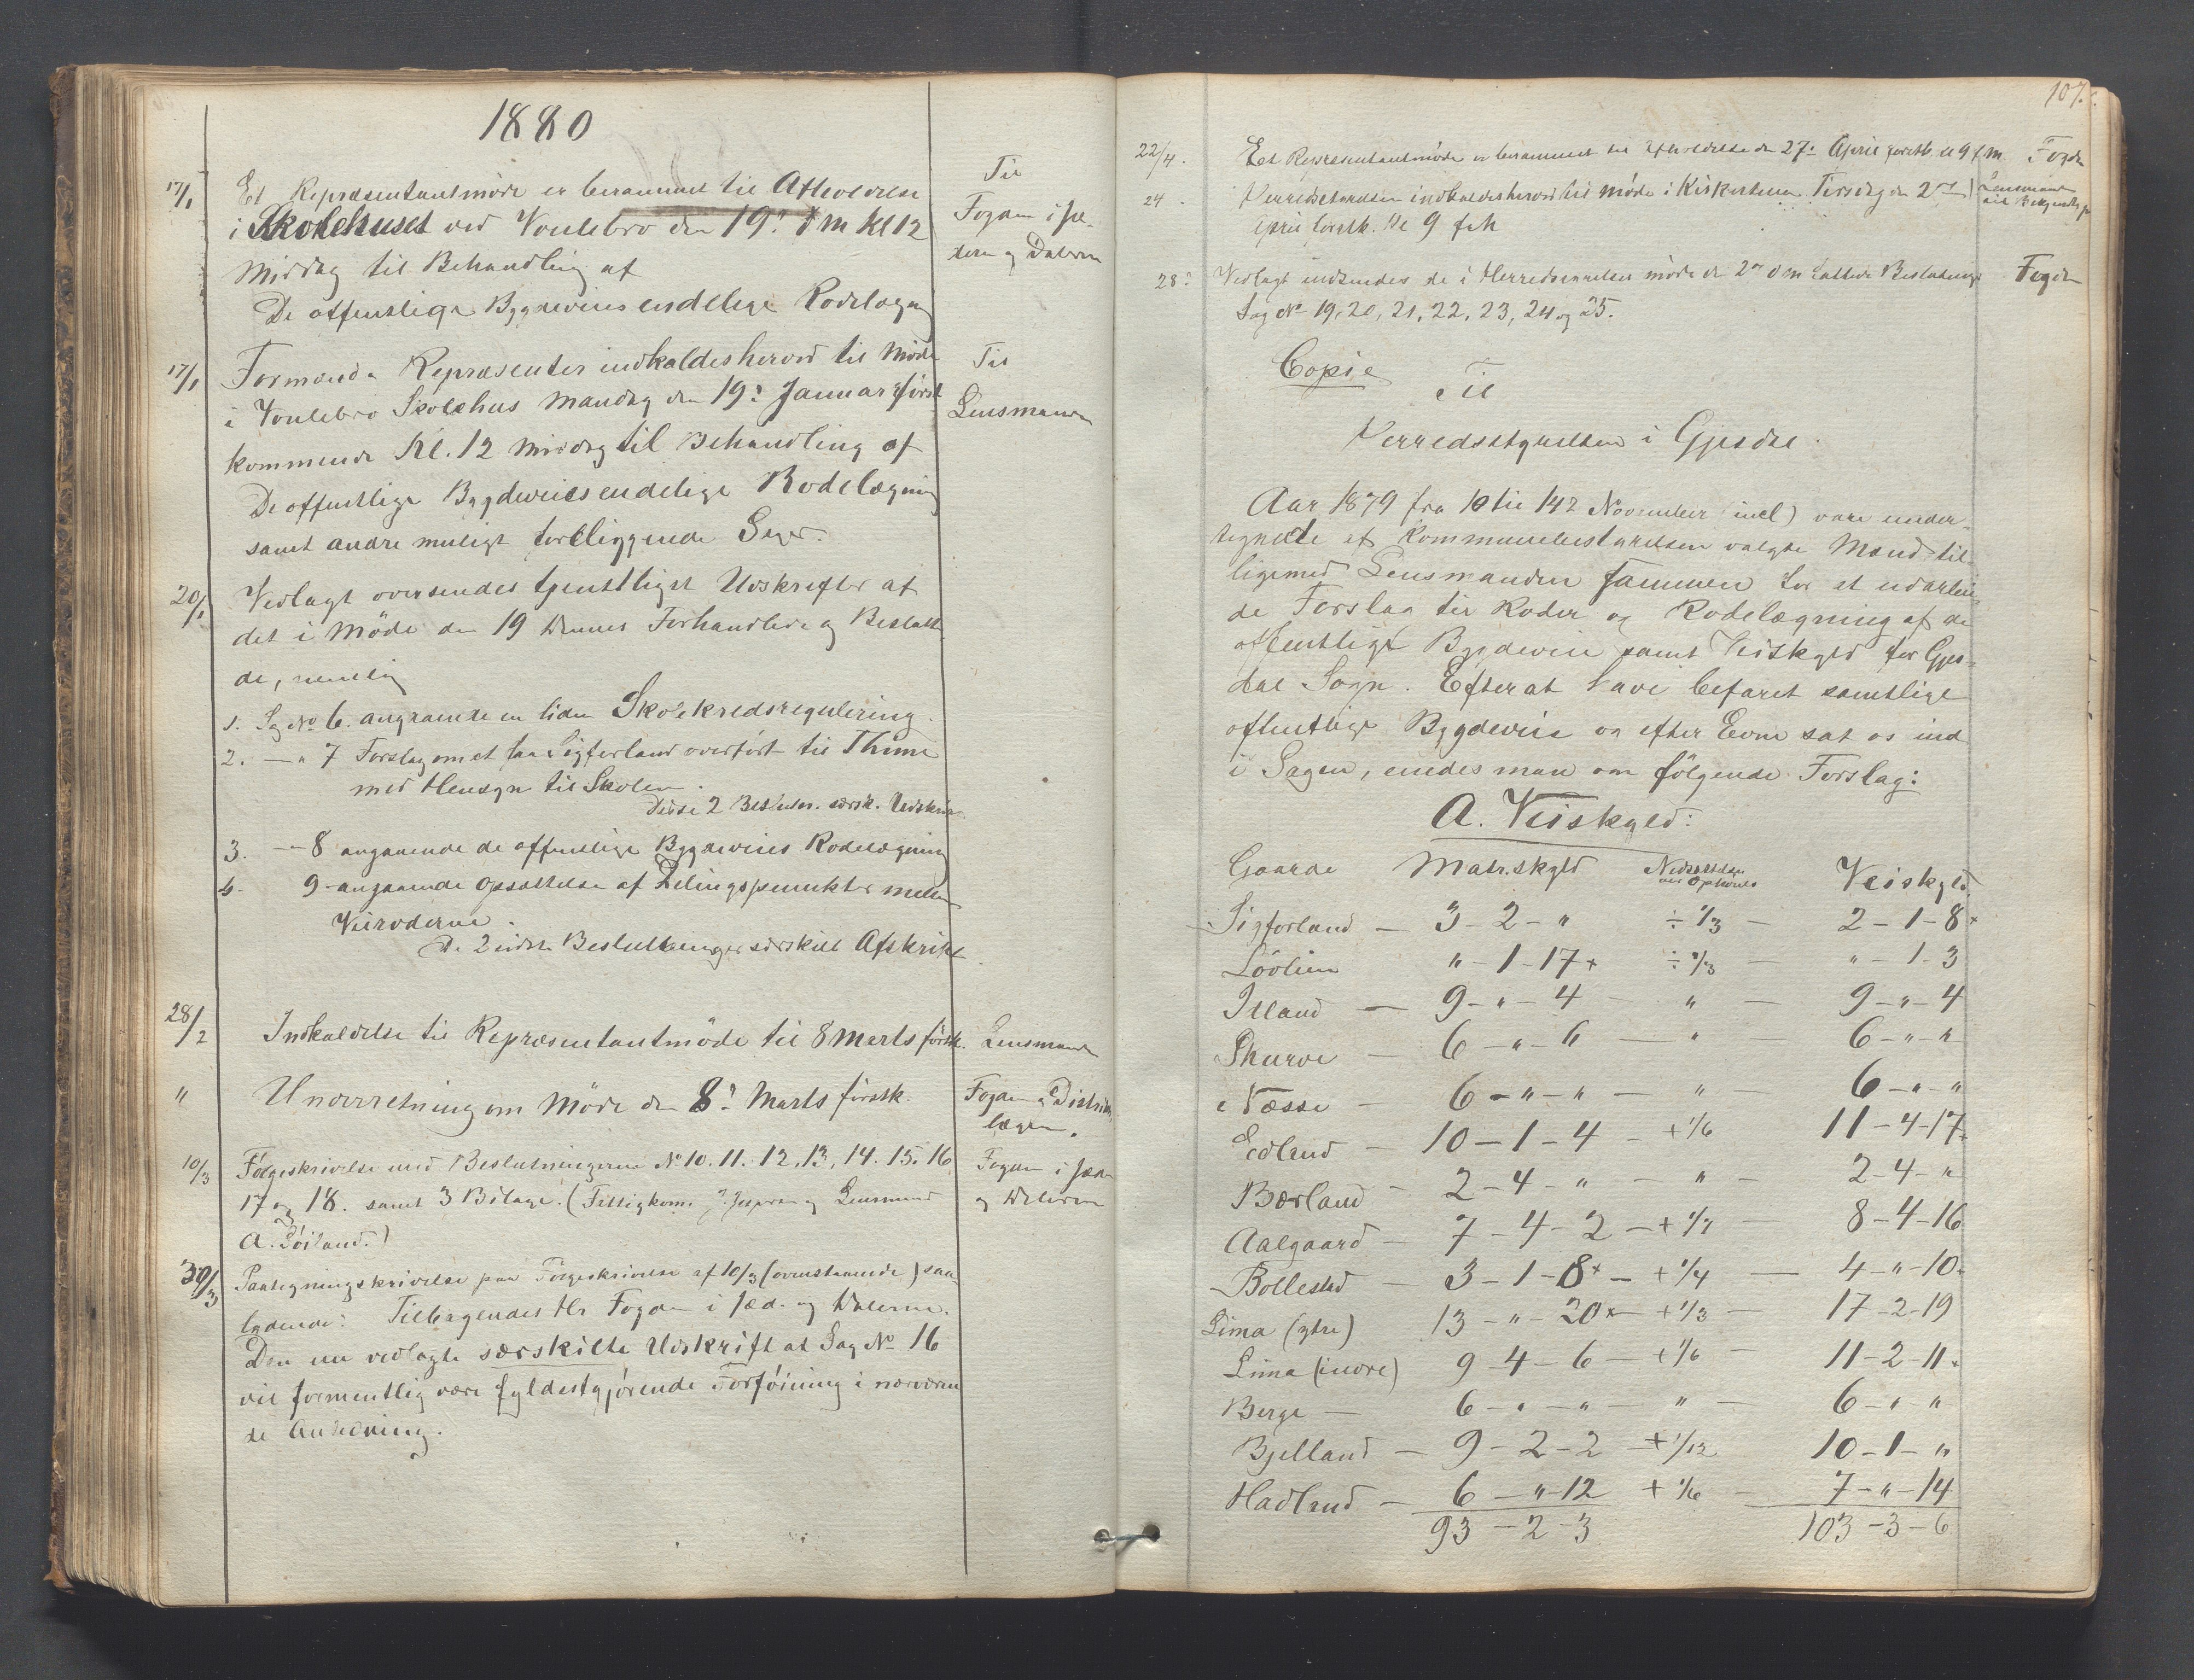 1880
17/1 Et Repræsentantmöde er berammet til Afholdelse
i Skolehuset ved Voulebro den 19: d M Kl 12
Middag til Behandling af
De offentlige Bygdeveies endelige Rodelægn
Til
Fogden i Jæ-
deren og Dalerne
17/1 Formænd & Repræsenter indkaldes herved til Möde
i Voulebro Skolehus Mandag den 19: Januar först
kommende Kl. 12 Middag til Behandling af
De offentlige Bygdeveies endelige Rodelægning
samt andre muligt foreliggende Sager.
Til
Lensmanden
20/1 Vedlagt oversendes tjenstligst Udskrifter af
det i Möde den 19 dennes Forhandlede og Beslutte
de, nemlig
1. Sag No 6. angaaende en liden Skolekredsregulering.
2. — " 7 Forslag om at faa Sigferland overfört til Thime
med Hensyn til Skolen.
Disse 2 Beslutn. særsk. Udskrift
3. — " 8 angaaende de offentlige Bygdeveies Rodelægning
4. 9 angaaende Opsættelse af Delingspunkter mellem
Veiroderne.
De 2 sidste Beslutninger særskilt Afskrift.
28/2 Indkaldelse til Repræsentantmöde til 8 Marts förstk. Lensmanden
" Underretning om Möde den 8: Marts förstk. Fogden & Distrikts
lægen.
10/3 Fölgeskrivelse med Beslutningerne No 10. 11. 12. 13, 14. 15. 16
17 og 18. samt 3 Bilage. (Fattigkom. J. Jespersen og Lensmand
A. Söiland.)
Fogden i Jæd.
og Dalerne
30/3 Paategningsskrivelse paa Fölgeskrivelse af 10/3 (ovenstaaende) saa
lydende: Tilbagesendes Hr Fogden i Jæd. og Dalerne.
Den nu vedlagte særskilte Udskrift af Sag No 16
vil formentlig være fyldestgjörende Forföining i nærværen
de Anledning.
107.
22/4. Et Repræsentantmöde er berammet til Afholdelse den 27: April förstk. Kl 9 f.m. Fogden
24. Herredsstyrelsen indkaldes herved til Möde i Kirkestuen Tirsdag den 27de
April förstk. Kl 9 f.m.
Lensmand
28: Vedlagt indsendes de i Herredsstyrelsens möde den 27 d m fattede Beslutninger
Sag No 19, 20, 21, 22, 23, 24 og 25.
Fogden
Copie
Til
Herredsstyrelsen i Gjesdal.
Aar 1879 fra 10 til 14de November (incl) vare under-
tegnede af Kommunebestyrelsen valgte Mænd til-
ligemed Lensmanden sammen for at udarbei-
de Forslag til Roder og Rodelægning af de
offentlige Bygdeveie samt Veiskyld for Gjes-
dal Sogn. Efterat have befaret samtlige
offentlige Bygdeveie og efter Evne sat os ind
i Sagen, enedes man om fölgende Forslag:
A. Veiskyld:
Gaarde Matr.skyld Nedsættelse eller Ophöielse Veiskyld.
Sigforland — 3 - 2 - " ÷ 1/3 — 2 - 1 - 8+
Lövlien " - 1 - 17+ ÷ 1/3 — " - 1 - 3
Itland — 9 - " - 4 — " — 9 - " - 4
Skurve — 6 - " - 6 — " — 6 - " - "
Næsse — 6 - " - " — " — 6 - " - "
Edland — 10 - 1 - 4 — + 1/6 11 - 4 - 17+
Bærland — 2 - 4 - " — " — 2 - 4 - "
Aalgaard — 7 - 4 - 2 — + 1/7 — 8 - 4 - 16
Bollestad — 3 - 1 - 8+ — + 1/4 — 4 - " - 10+
Lima (ytre) 13 - " - 20+ — + 1/3 — 17 - 2 - 19
Lima (indre) 9 - 4 - 6 — + 1/6 — 11 - 2 - 11+
Berge — 6 - " - " — " — 6 - " "
Bjelland — 9 - 2 - 2 — + 1/12 10 - 1 - "
Hadland — 6 - " - 12 + 1/6 — 7 - " - 14
93 - 2 - 3 103 - 3 - 6